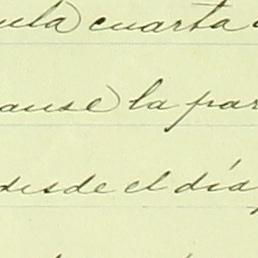 ula) cuarta
ause) la par
desde el día